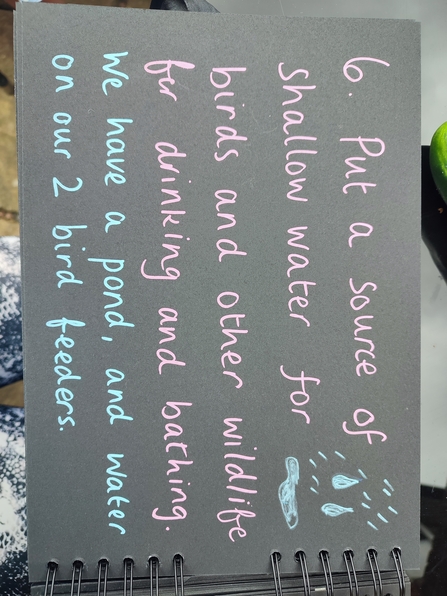 6. Put a source of
shallow water for
birds and other wildlife
for drinking and bathing.
We have a pond, and water
on our 2 bird feeders.